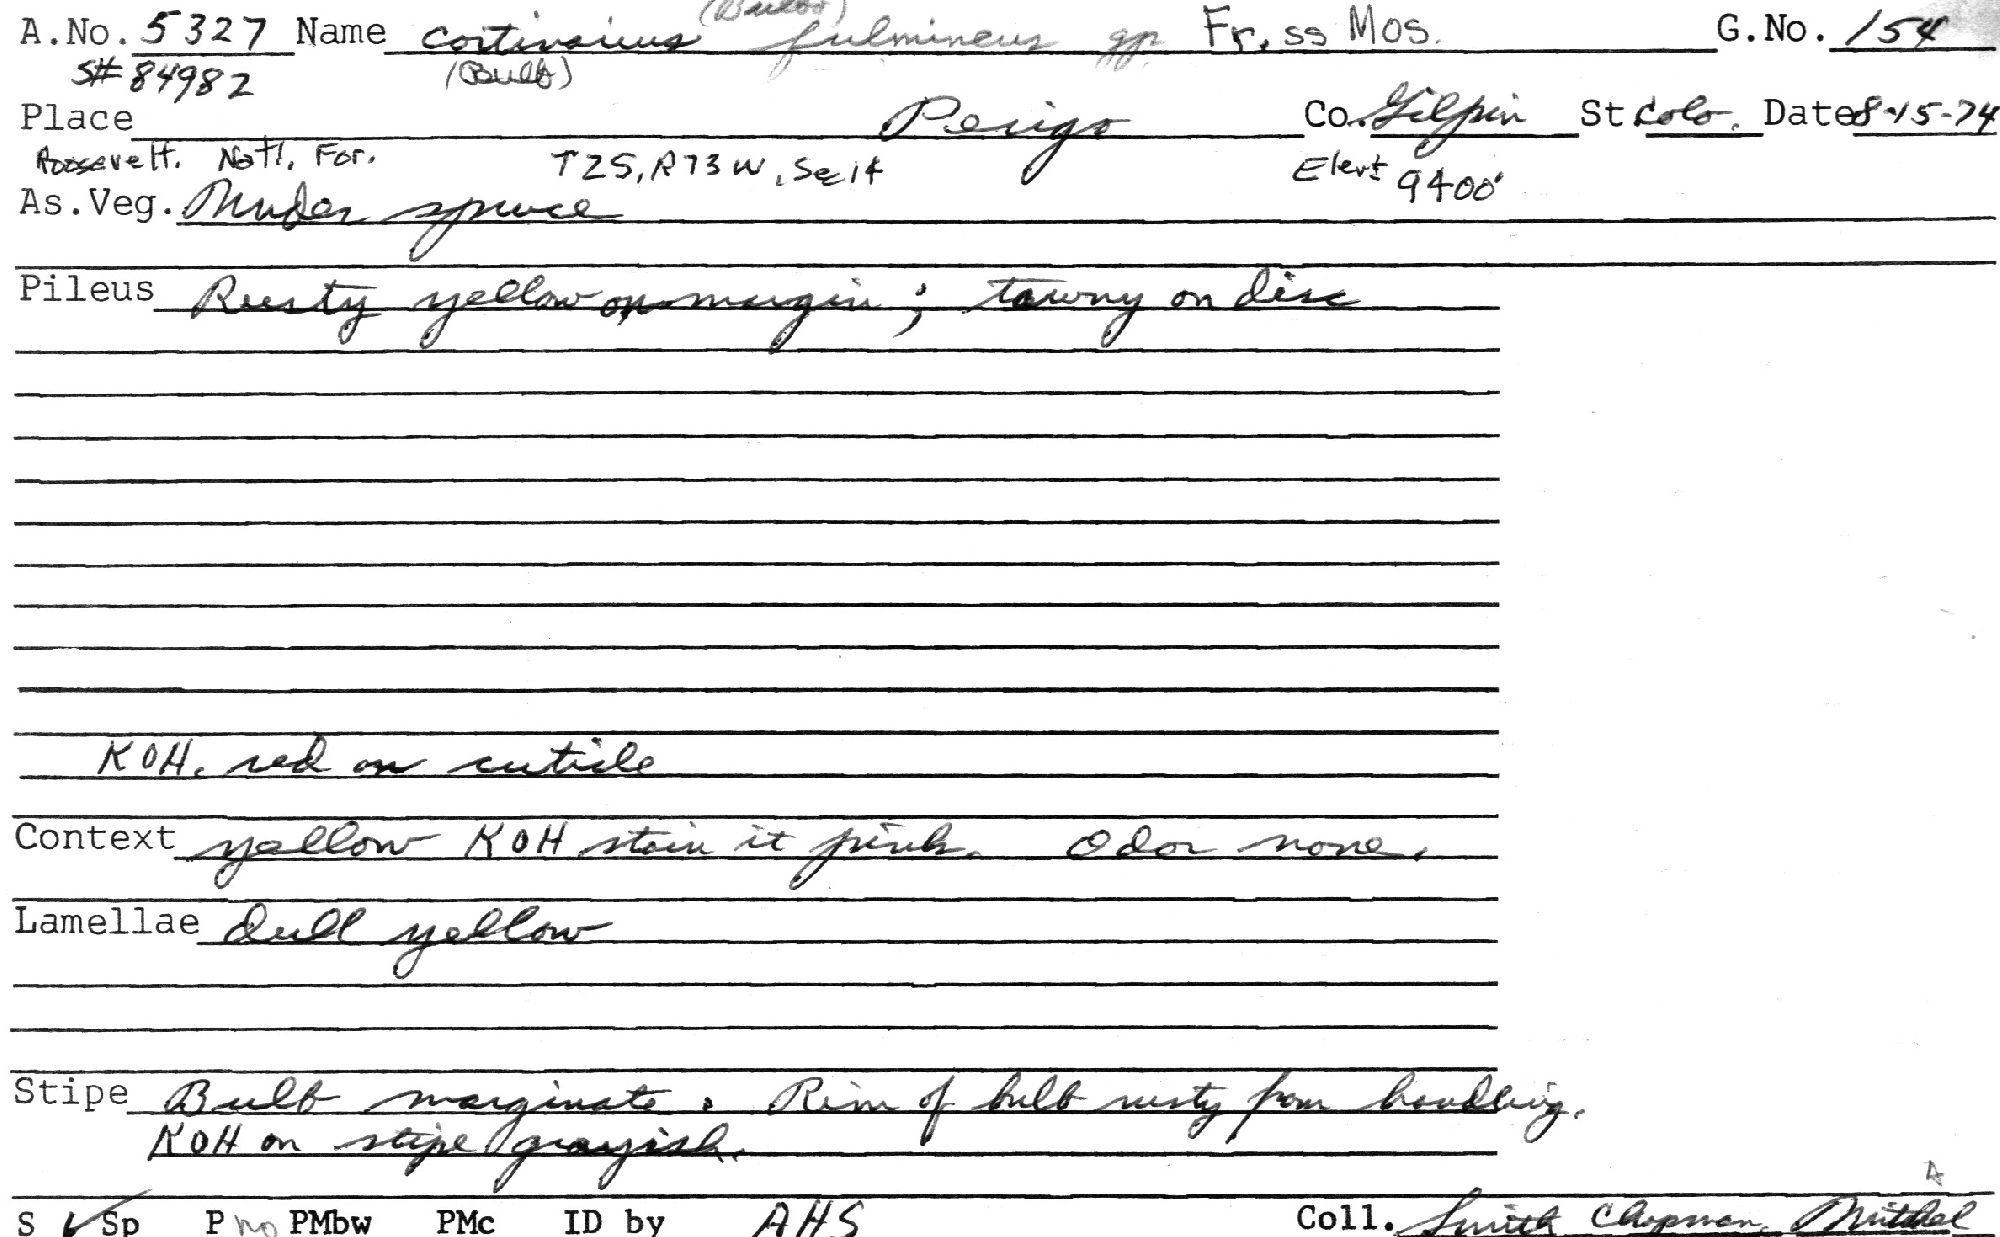 (Bulbo)
A.No. 5327 Name Cortinarius fulmineus gp. Fr. ss Mos. G.No. 154
S# 84982 (Bulb)
Place Perigo Co. Gilpin St Colo. Date 8-15-74
Roosevelt. Nat'l. For. T2S, R73W, Sec 14 Elev± 9400'
As.Veg. Under spruce
Pileus Rusty yellow on margin; tawny on disc
KOH. red on cuticle
Context yellow KOH stain it pink. Odor none.
Lamellae dull yellow
Stipe Bulb marginate. Rim of bulb rusty from handling.
KOH on stipe grayish.
S ✓ Sp P no PMbw PMc ID by AHS Coll. Smith Chapman, Mitchel